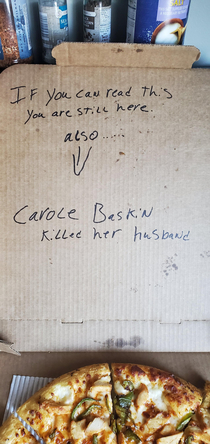 IF You can read this
You are still here.
also......
Carole Baskin
Killed her husband